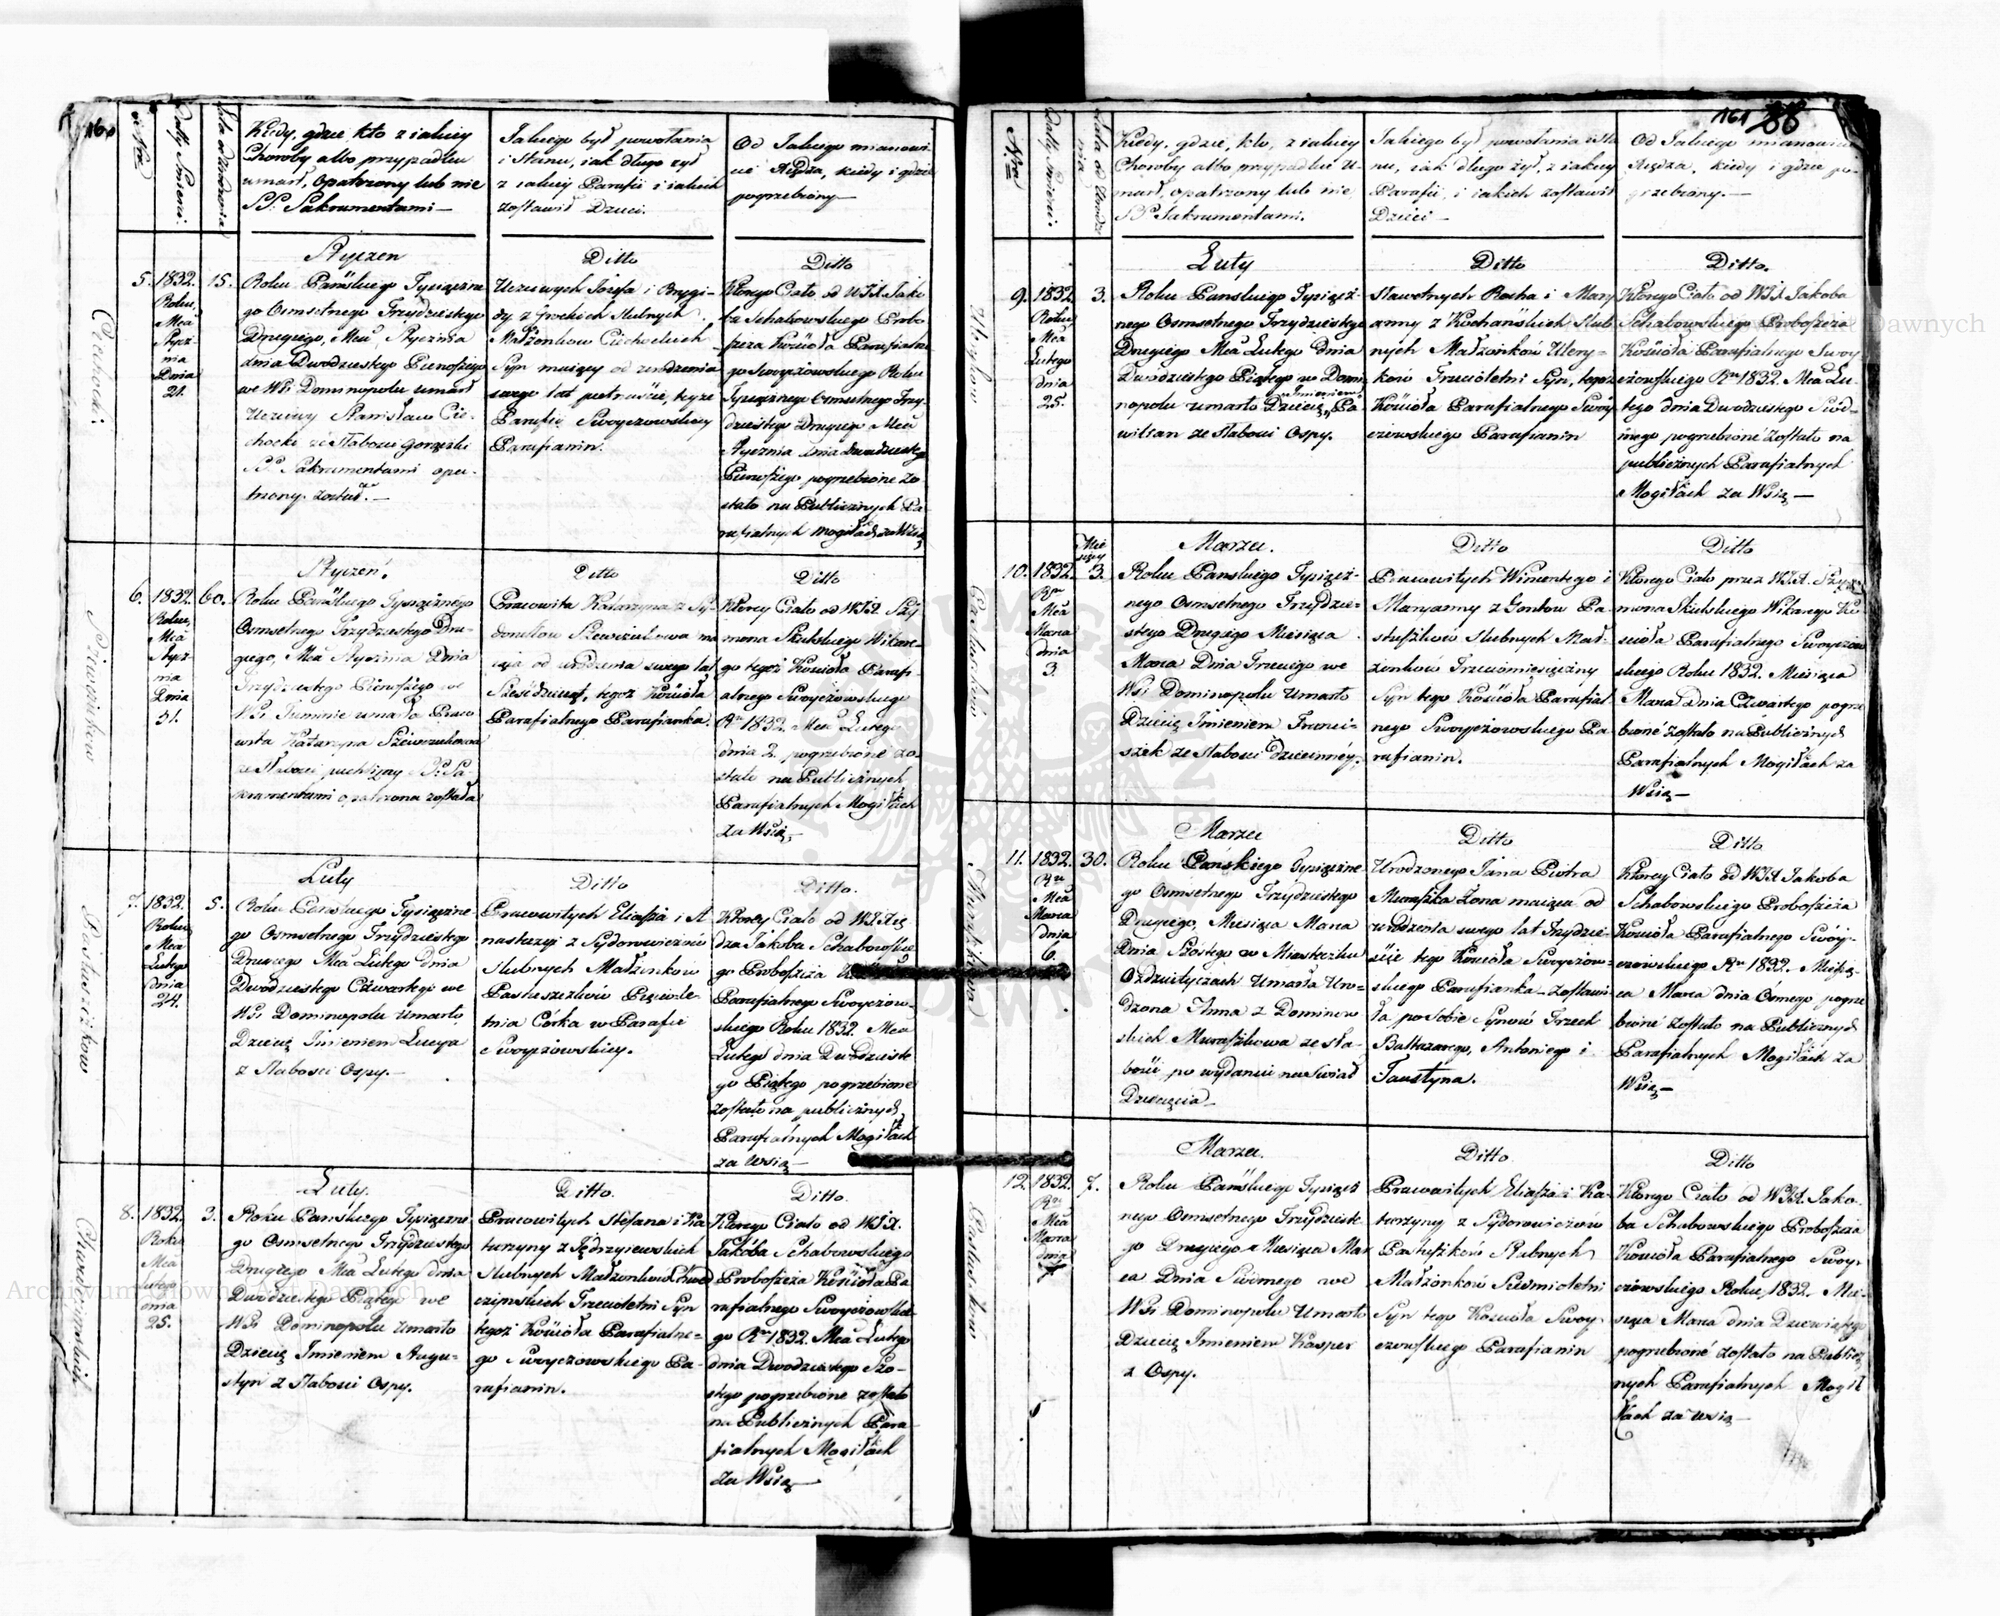 160
Nro.
Datty Śmierci.
Lata od Urodzenia
Kiedy, gdzie kto z iakiey
Choroby albo przypadku
umarł, Opatrzony lub nie
SS. Sakramentami —
Jakiego był powołania
i Stanu, iak długo żył
z iakiey Parafii i iakich
zostawił Dzieci.
Od Jakiego mianowi-
cie Xiędza, kiedy i gdzie
pogrzebiony —
Cichocki
5.
1832.
Roku,
Mca
Stycz-
nia
Dnia
21.
15.
Styczen
Roku Pańskiego Tysiączne
go Osmsetnego Trzydziestego
Drugiego, Mca Stycznia
dnia Dwudziestego Pierwszego
we Wsi Dominopolu umarł
Uczciwy Stanisław Ci-
chocki ze Słabosci gorączki
SS. Sakramentami opa-
trzony został. —
Ditto
Uczciwych Jozefa i Brygi-
dy z Ślubnych
Małżonkow Cichockich
Syn maiący od urodzenia
swego lat pietnaście, tegoż
Parafii Swoyczowskiey
Parafianin.
Ditto
Ktorego Ciało od WJX. Jako
ba Schabowskiego Probo-
szcza Kościoła Parafialne
go Swoyczowskiego Roku
Tysiącznego Osmsetnego Trzy
dziestego Drugiego Mca
Stycznia dnia Dwudziestego
Pierwszego pogrzebione zo-
stało na Publicznych Pa-
rafialnych Mogiłach za Wsią
6.
1832.
Roku,
Mca
Stycz-
nia
Dnia
31.
60.
Styczeń.
Roku Pańskiego Tysiącznego
Osmsetnego Trzydziestego Dru-
giego, Mca Stycznia Dnia
Trzydziestego Pierwszego we
Wsi umarła Praco
wita Katarzyna Szewczukowa
ze Słabosci SS. Sa-
kramentami opatrzona została
Ditto
Pracowita Katarzyna z Sy-
donikow Szewczukowa ma
iąca od urodzenia swego lat
Sześcdziesiąt, tegoż Kościoła
Parafialnego Parafianka.
Ditto
Ktorey Ciało od WJX. Szy
mona Skulskiego Wikare-
go tegoż Kościoła Parafi-
alnego Swoyczowskiego
Rku 1832. Mca Lutego
dnia 2. pogrzebione zo-
stało na Publicznych
Parafialnych Mogiłach
za Wsią. —
7.
1832.
Roku,
Mca
Lutego
dnia
24.
5.
Luty
Roku Panskiego Tysiączne-
go Osmsetnego Trzydziestego
Drugiego Mca Lutego dnia
Dwudziestego Czwartego we
Wsi Dominopolu umarło
Dziecię Imieniem Łucya
z Słabosci Ospy. —
Ditto
Pracowitych Eliasza i A-
nastazyi z Sydorowiczow
slubnych Małżonkow
Pastuszczkow Pięciole-
tnia Córka w Parafii
Swoyczowskiey.
Ditto.
Ktorey Ciało od WJ Xię
dza Jakoba Schabowskie
go Proboszcza
Parafialnego Swoyczow-
skiego Roku 1832. Mca
Lutego dnia Dwódzieste-
go Piątego pogrzebione
zostało na publicznych
Parafialnych Mogiłach
za Wsią —
8.
1832.
Roku
Mca
Lutego
dnia
25.
3.
Luty.
Roku Panskiego Tysiączne
go Osmsetnego Trzydziestego
Drugiego Mca Lutego dnia
Dwodziestego Piątego we
Wsi Dominopolu umarło
Dziecię Imieniem Augu-
styn z Słabosci Ospy.
Ditto.
Pracowitych Stefana i Ka
tarzyny z Jędrzyiewskich
Slubnych Małżonkow
Trzecioletni Syn
tegoż Kościoła Parafialne-
go Swoyczowskiego Pa-
rafianin.
Ditto.
Ktorego Ciało od WJX.
Jakóba Schabowskiego
Proboszcza Kościoła Pa-
rafialnego Swoyczowskie
go Rku 1832. Mca Lutego
dnia Dwodziestego Szo-
stego pogrzebione zostało
na Publicznych Para-
fialnych Mogiłach
za Wsią —
161
88
Nro.
Datty Śmierci.
Lata od Urodze
nia
Kiedy, gdzie, kto, z iakiey
Choroby albo przypadku u-
marł, opatrzony lub nie
SS. Sakramentami.
Jakiego był powołania i Sta
nu, iak długo żył, z iakiey
Parafii, i iakich zostawił
Dzieci —
Od Jakiego mianowicie
Xiędza, kiedy i gdzie po-
grzebiony. —
9.
1832.
Roku
Mca
Lutego
dnia
25.
3.
Luty
Roku Panskiego Tysiącz-
nego Osmsetnego Trzydziestego
Drugiego Mca Lutego Dnia
Dwódziestego Piątego w Domi-
nopolu umarło Dziecię Imieniem Pa-
wilian ze Słabosci Ospy.
Ditto
Sławetnych Rocha i Mary
anny z Kochańskich Slub-
nych Małżonkow
Trzecioletni Syn, tegoż
Kościoła Parafialnego Swoy-
czowskiego Parafianin
Ditto.
Ktorego Ciało od WJX Jakoba
Schabowskiego Proboszcza
Kościoła Parafialnego Swoy
czowskiego Rku 1832. Mca Lu-
tego dnia Dwodziestego Siód-
mego pogrzebione zostało na
publicznych Parafialnych
Mogiłach za Wsią —
10.
1832.
Rku
Mca
Marca
dnia
3.
Mie
sięcy
3.
Marzec.
Roku Panskiego Tysiącz-
nego Osmsetnego Trzydzie-
stego Drugiego Miesiąca
Marca Dnia Trzeciego we
Wsi Dominopolu Umarło
Dziecię Imieniem Franci-
szek ze Słabosci dziecinnéy.
Ditto
Pracowitych Wincentego i
Maryanny z Gontow Pa-
stuszkow slubnych Mał-
żonków Trzecomiesięczny
Syn tego Kościoła Parafial-
nego Swoyczowskiego Pa-
rafianin.
Ditto
Ktorego Ciało przez WJX. Szy-
mona Skulskiego Wikarego Ko-
scioła Parafialnego Swoyczow
skiego Roku 1832. Miesiąca
Marca dnia Czwartego pogrze
bioné zostało na Publicznych
Parafialnych Mogiłach za
Wsią —
11.
1832.
Rku
Mca
Marca
dnia
6.
30.
Marzec
Roku Pańskiego Tysiączne
go Osmsetnego Trzydziestego
Drugiego, Miesiąca Marca
Dnia Szóstego w Miasteczku
Ozdziutyczach Umarła Uro-
dzona Anna z Dominow
skich Muraszkowa ze sła-
bości po wydaniu na Swiat
Dziecięcia —
Ditto
Urodzonego Jana Piotra
Muraszka Zona maiąca od
urodzenia swego lat Trzydzie-
ście tego Kościoła Swoyczow-
skiego Parafianka — Zostawi
ła po Sobie Synów Trzech
Baltazarego, Antoniego i
Faustyna.
Ditto
Ktorey Ciało od WJX Jakoba
Schabowskiego Proboszcza
Kościoła Parafialnego Swoy-
czowskiego Rku 1832. Miesią-
ca Marca dnia Ósmego pogrze
bioné zostało na Publicznych
Parafialnych Mogiłach za
Wsią —
12.
1832.
Rku
Mca
Marca
dnia
7.
7.
Marzec.
Roku Pańskiego Tysiącz
nego Osmsetnego Trzydzieste
go Drugiego Miesiąca Mar
ca Dnia Siódmego we
Wsi Dominopolu Umarło
Dziecię Imieniem Kasper
z Ospy.
Ditto
Pracowitych Eliasza i Ka-
tarzyny z Sydorowiczow
Pastuszkow Slubnych
Małżonków Siedmioletni
Syn tego Kościoła Swoy-
czowskiego Parafianin
Ditto
Ktorego Ciało od WJX. Jako-
ba Schabowskiego Proboszcza
Kościoła Parafialnego Swoy-
czowskiego Roku, 1832. Mie-
siąca Marca dnia Dziewiątego
pogrzebioné zostało na Publicz
nych Parafialnych Mogił
łach za Wsią —
Archiwum Główne Akt Dawnych